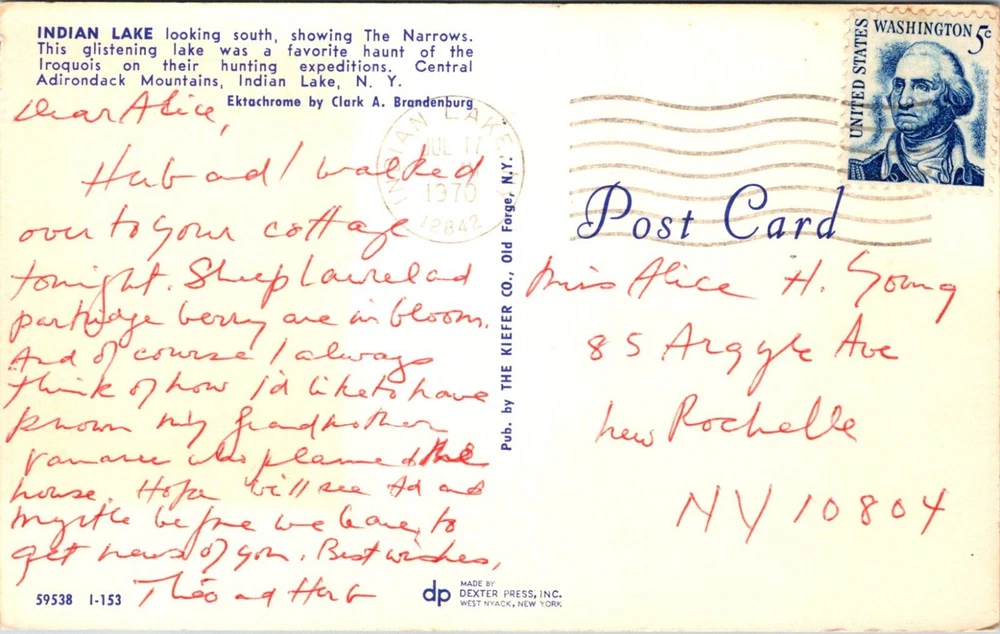 INDIAN LAKE looking south, showing The Narrows.
This glistening lake was a favorite haunt of the
Iroquois on their hunting expeditions. Central
Adirondack Mountains, Indian Lake, N. Y.
Ektachrome by Clark A. Brandenburg
Dear Alice,
Herb and I walked
over to your cottage
tonight. Sheep Laurel and
partridge berry are in bloom.
And of course I always
think of how I'd like to have
known my grandmother
who planned the
house. Hope we'll see Ad and
Myrtle before we leave, to
get news of you. Best wishes,
Theo and Herb
59538 I-153
Pub. by THE KIEFER CO., Old Forge, N.Y.
dp MADE BY
DEXTER PRESS, INC.
WEST NYACK, NEW YORK
INDIAN LAKE
JUL 17
1970
12842
UNITED STATES
WASHINGTON 5c
Post Card
Miss Alice H. Young
85 Argyle Ave
New Rochelle
NY 10804